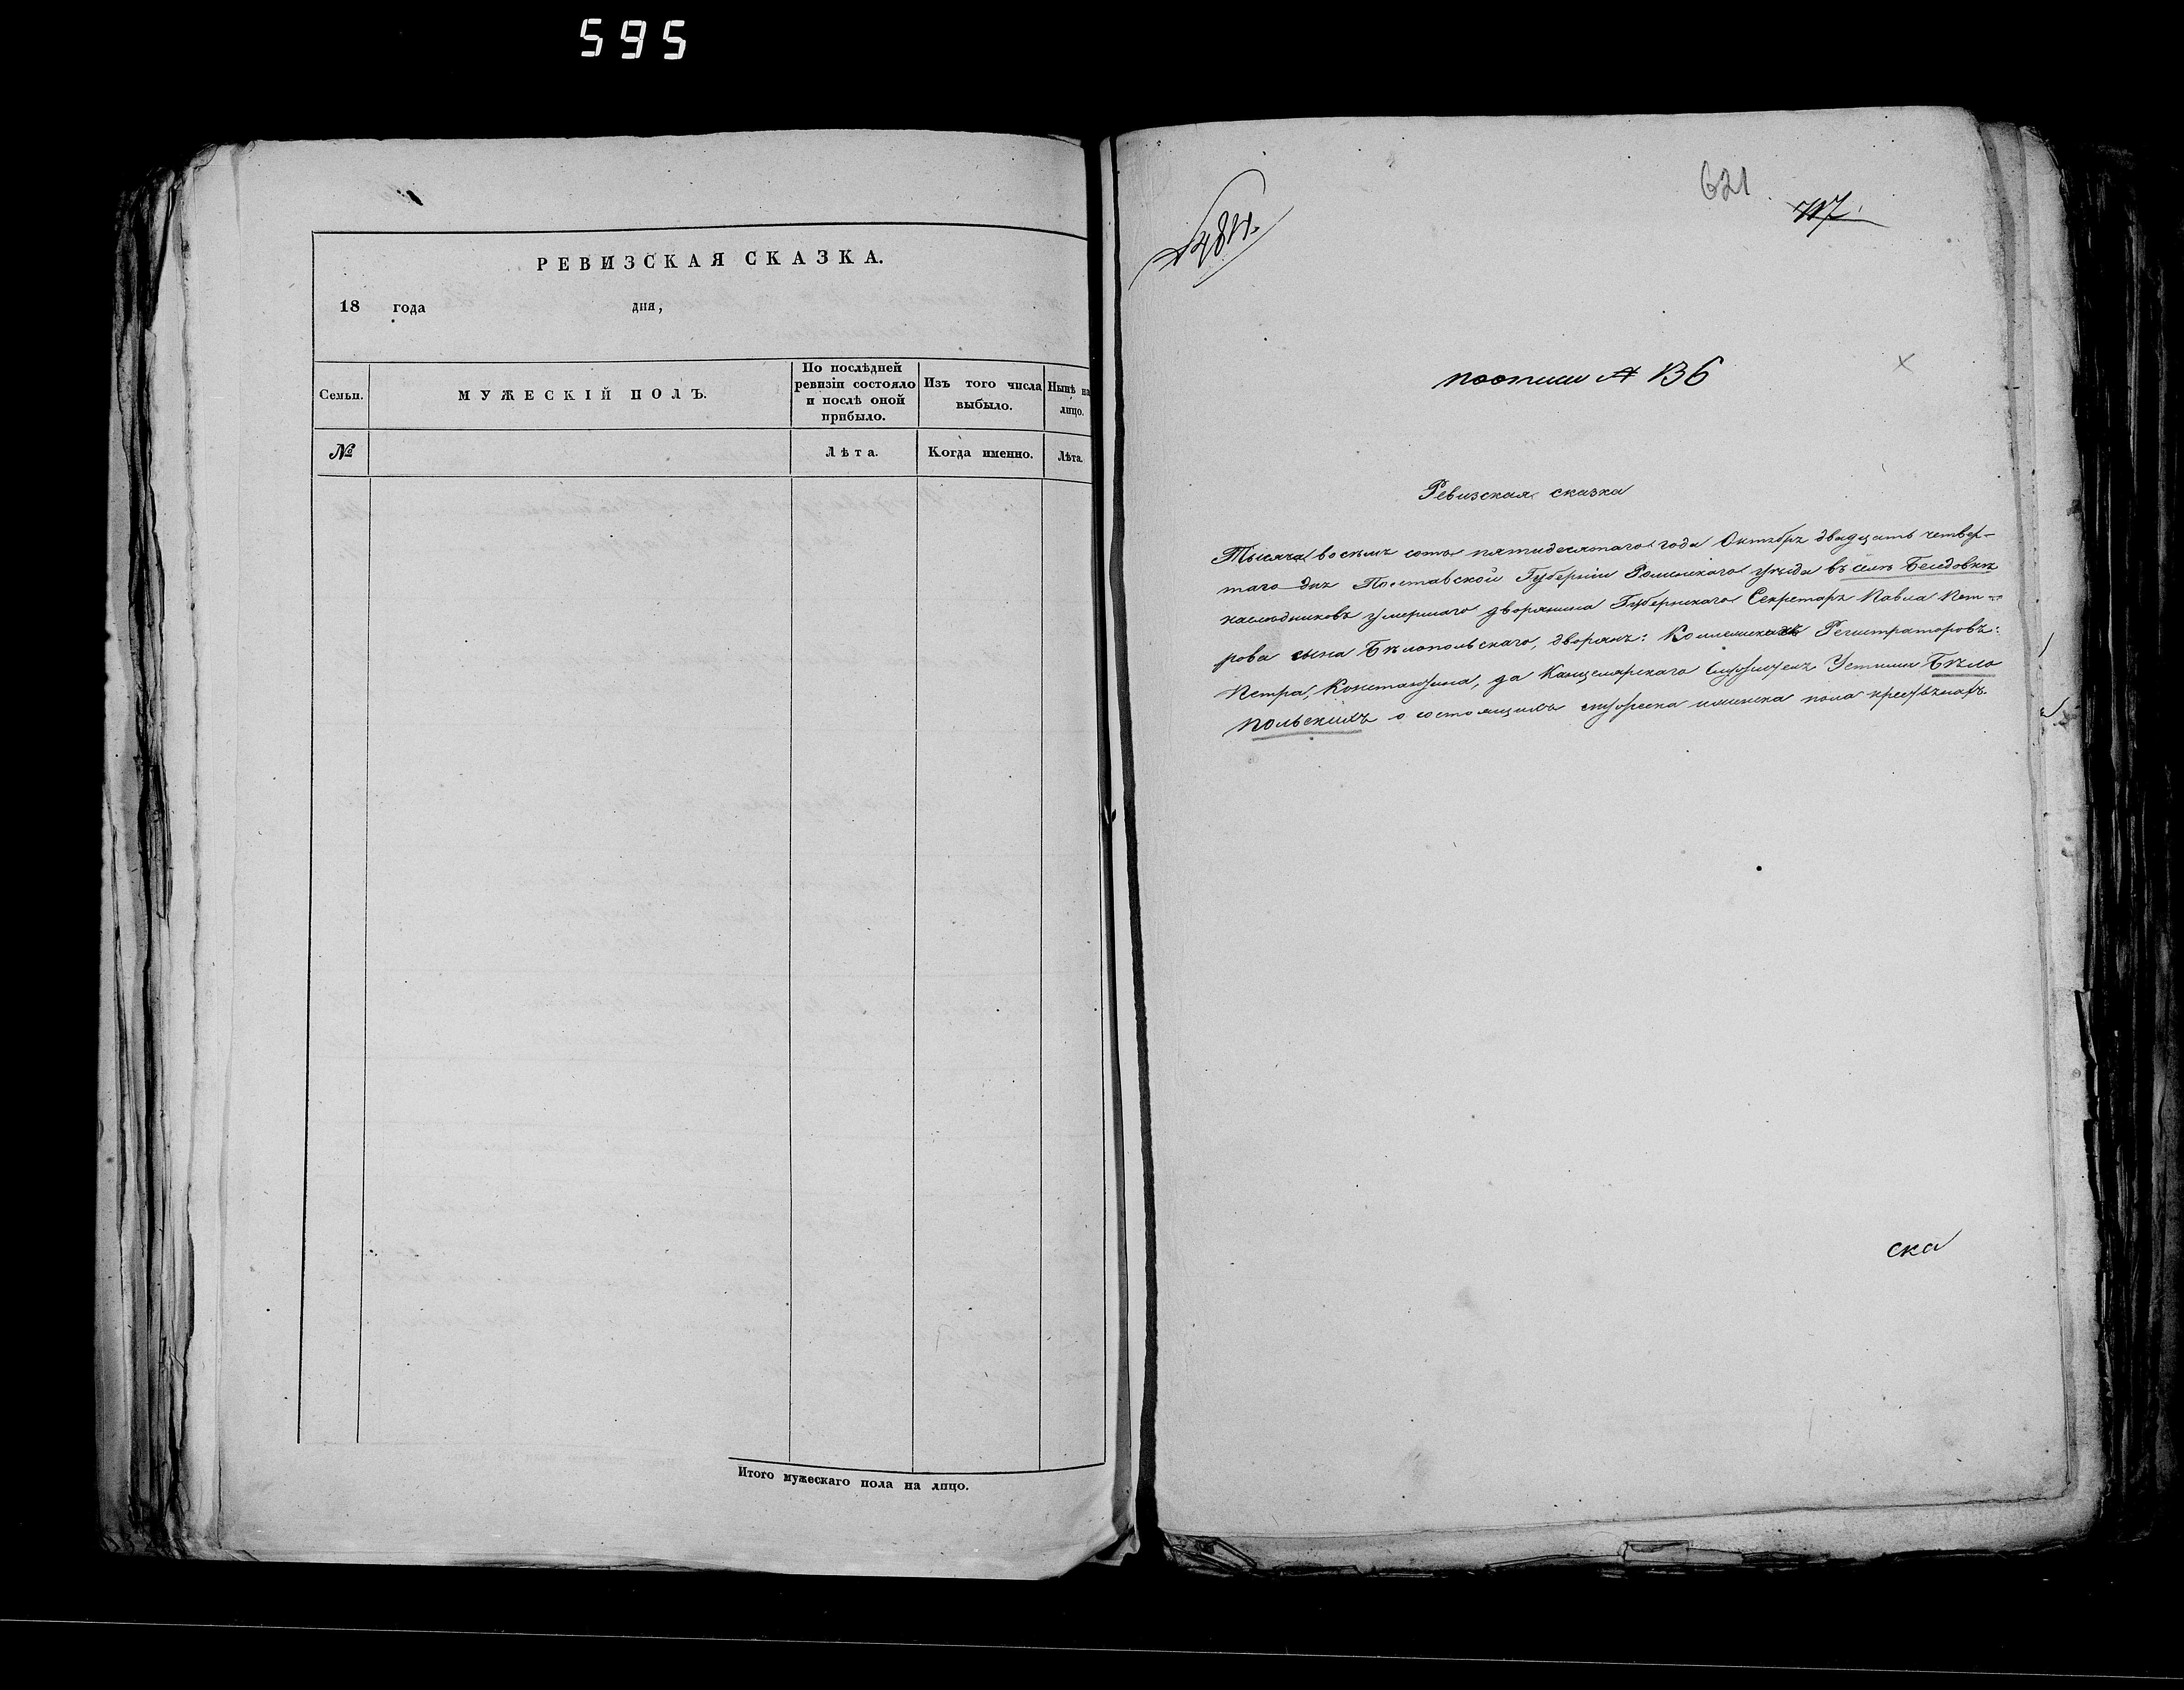 595
РЕВИЗСКАЯ СКАЗКА.
18 года дня,
Семьи.
МУЖЕСКІЙ ПОЛЪ.
По послѣдней
ревизіи состояло
и послѣ оной
прибыло.
Изъ того числа
выбыло.
Нынѣ на
лицо.
№
Лѣта.
Когда именно.
Лѣта.
Итого мужескаго пола на лицо.
621
поописи № 136
Ревизская сказка
Тысяча восемь сотъ пятидесятаго года Октября двадцать четвер-
таго дня Полтавской Губерніи Роменскаго уѣзда въ селѣ
наслѣдниковъ умершаго дворянина Губернскаго Секретаря Павла Пет-
рова сына Бѣлопольскаго, дворянъ: Регистраторовъ:
Петра, Константина, да Канцелярскаго Устима Бѣло
польскихъ о состоящихъ пола крестьянахъ.
ска